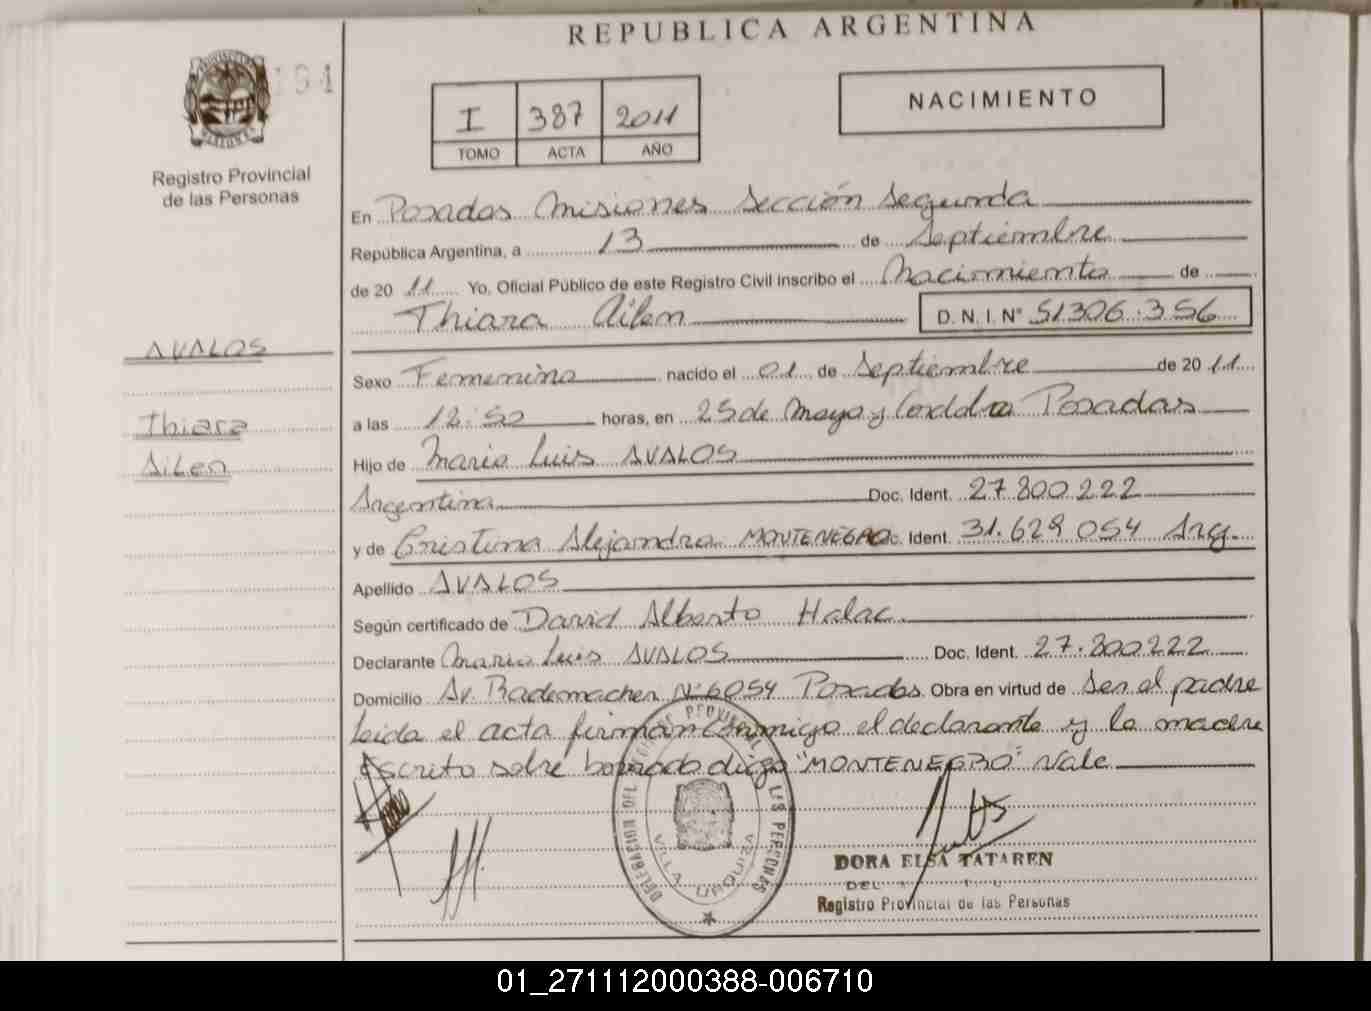 REPUBLICA ARGENTINA
194
Registro Provincial
de las Personas
I 387 2011
TOMO ACTA AÑO
NACIMIENTO
En Posadas Misiones Sección Segunda
República Argentina, a 13 de Septiembre
de 2011 Yo, Oficial Público de este Registro Civil inscribo el Nacimiento de
Thiara Ailen D. N. I. N° 51306.356
AVALOS
Thiara
Ailen
Sexo Femenino nacido el 01 de Septiembre de 2011
a las 12:50 horas, en 25 de Mayo y Cordoba Posadas
Hijo de Mario Luis AVALOS
Argentina Doc. Ident. 27.800.222
y de Cristina Alejandra MONTENEGRO c. Ident. 31.629.054 Arg.
Apellido AVALOS
Según certificado de David Alberto Halac.
Declarante Mario Luis AVALOS Doc. Ident. 27.800.222
Domicilio Av. Rademacher N° 6054 Posadas. Obra en virtud de Ser el padre
leida el acta firman conmigo el declarante y la madre
Escrito sobre borrado digo "MONTENEGRO" Vale
DELEGACION DEL REGISTRO PROVINCIAL DE LAS PERSONAS
VILLA URQUIZA
DORA ELSA TATAREN
DEL
Registro Provincial de las Personas
01_271112000388-006710